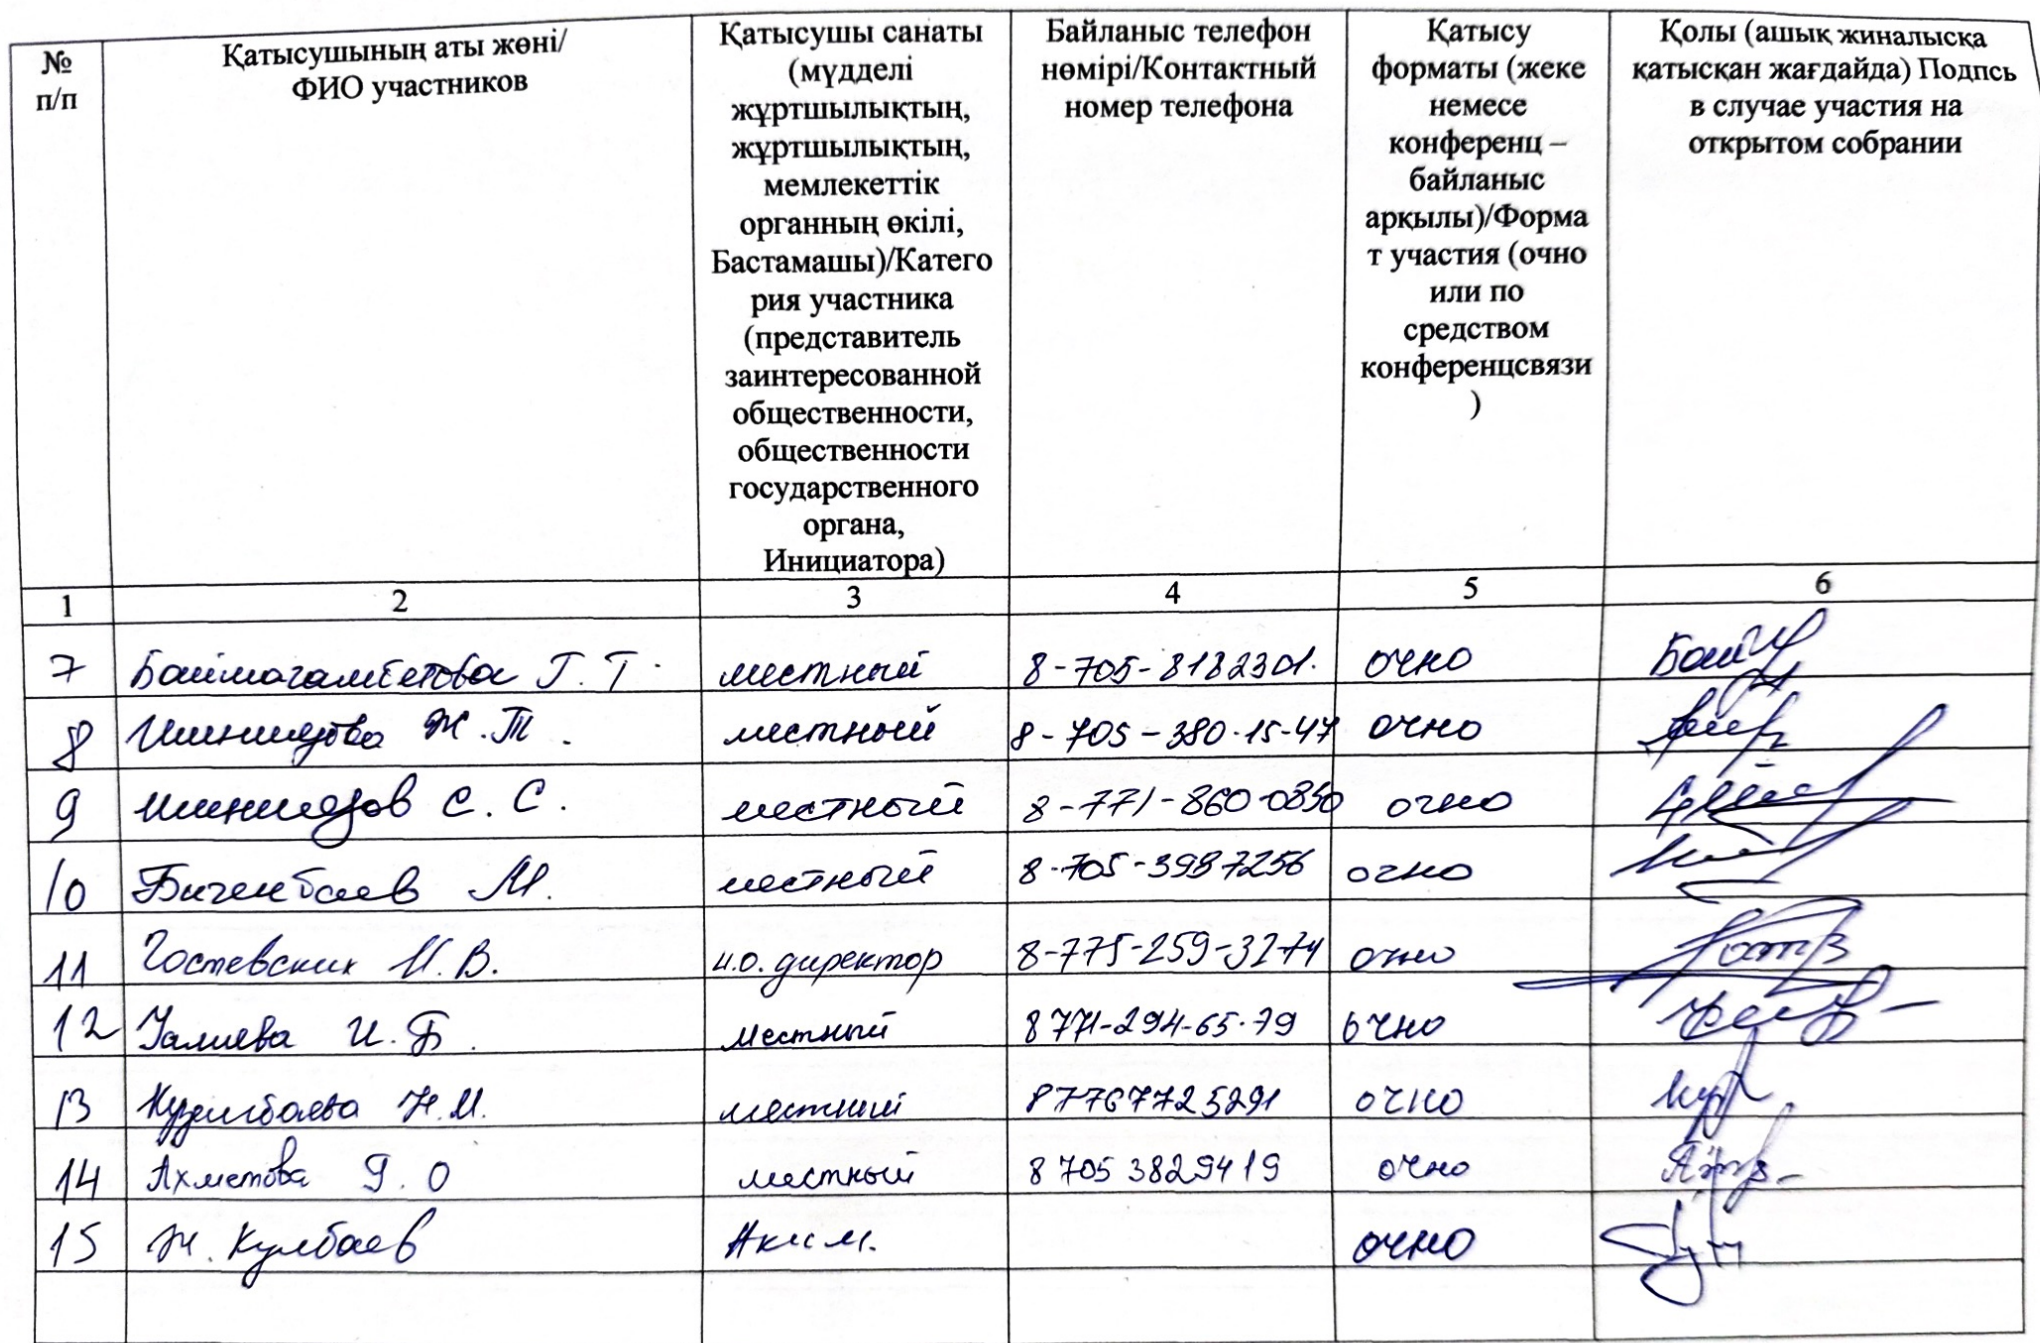 №
п/п
Қатысушының аты жөні/
ФИО участников
Қатысушы санаты
(мүдделі
жұртшылықтың,
жұртшылықтың,
мемлекеттік
органның өкілі,
Бастамашы)/Катего
рия участника
(представитель
заинтересованной
общественности,
общественности
государственного
органа,
Инициатора)
Байланыс телефон
нөмірі/Контактный
номер телефона
Қатысу
форматы (жеке
немесе
конференц –
байланыс
арқылы)/Форма
т участия (очно
или по
средством
конференцсвязи
)
Қолы (ашық жиналысқа
қатысқан жағдайда) Подпсь
в случае участия на
открытом собрании
1 2 3 4 5 6
7 Баймагамбетова Г. Т. местный 8-705-8182301. очно
8 Ж.Т. местный 8-705-380-15-47 очно
9 Ишниязов С. С. местный 8-771-860-0830 очно
10 Бигенбаев М. местный 8-705-3987256 очно
11 Гостевских И.В. и.о. директор 8-775-259-3274 очно
12 Уалиева И. Б. местный 8 771-294-65-79 очно
13 Н.М. местный 87767725291 очно
14 Ахметова Э. О местный 8 705 3829419 очно
15 Ж. Кулбаев Аким. очно